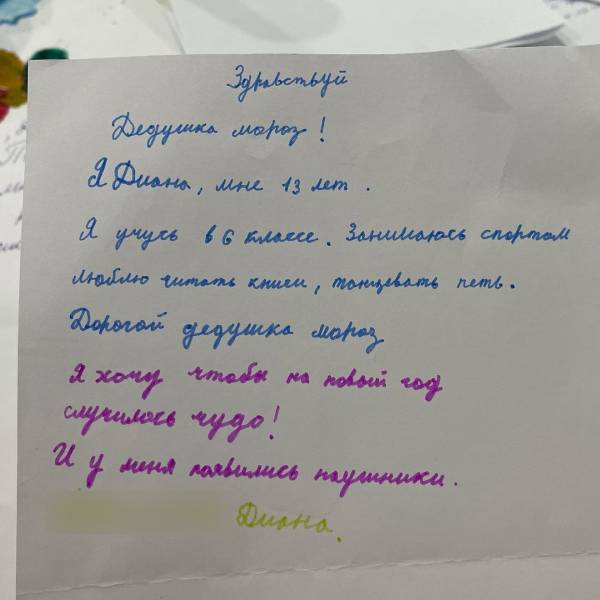 Здравствуй
Дедушка мороз!
Я Диана, мне 13 лет.
Я учусь в 6 классе. Занимаюсь спортом
люблю читать книги, танцевать петь.
Дорогой дедушка мороз
Я хочу чтобы на новый год
случилось чудо!
И у меня появились наушники.
Диана.